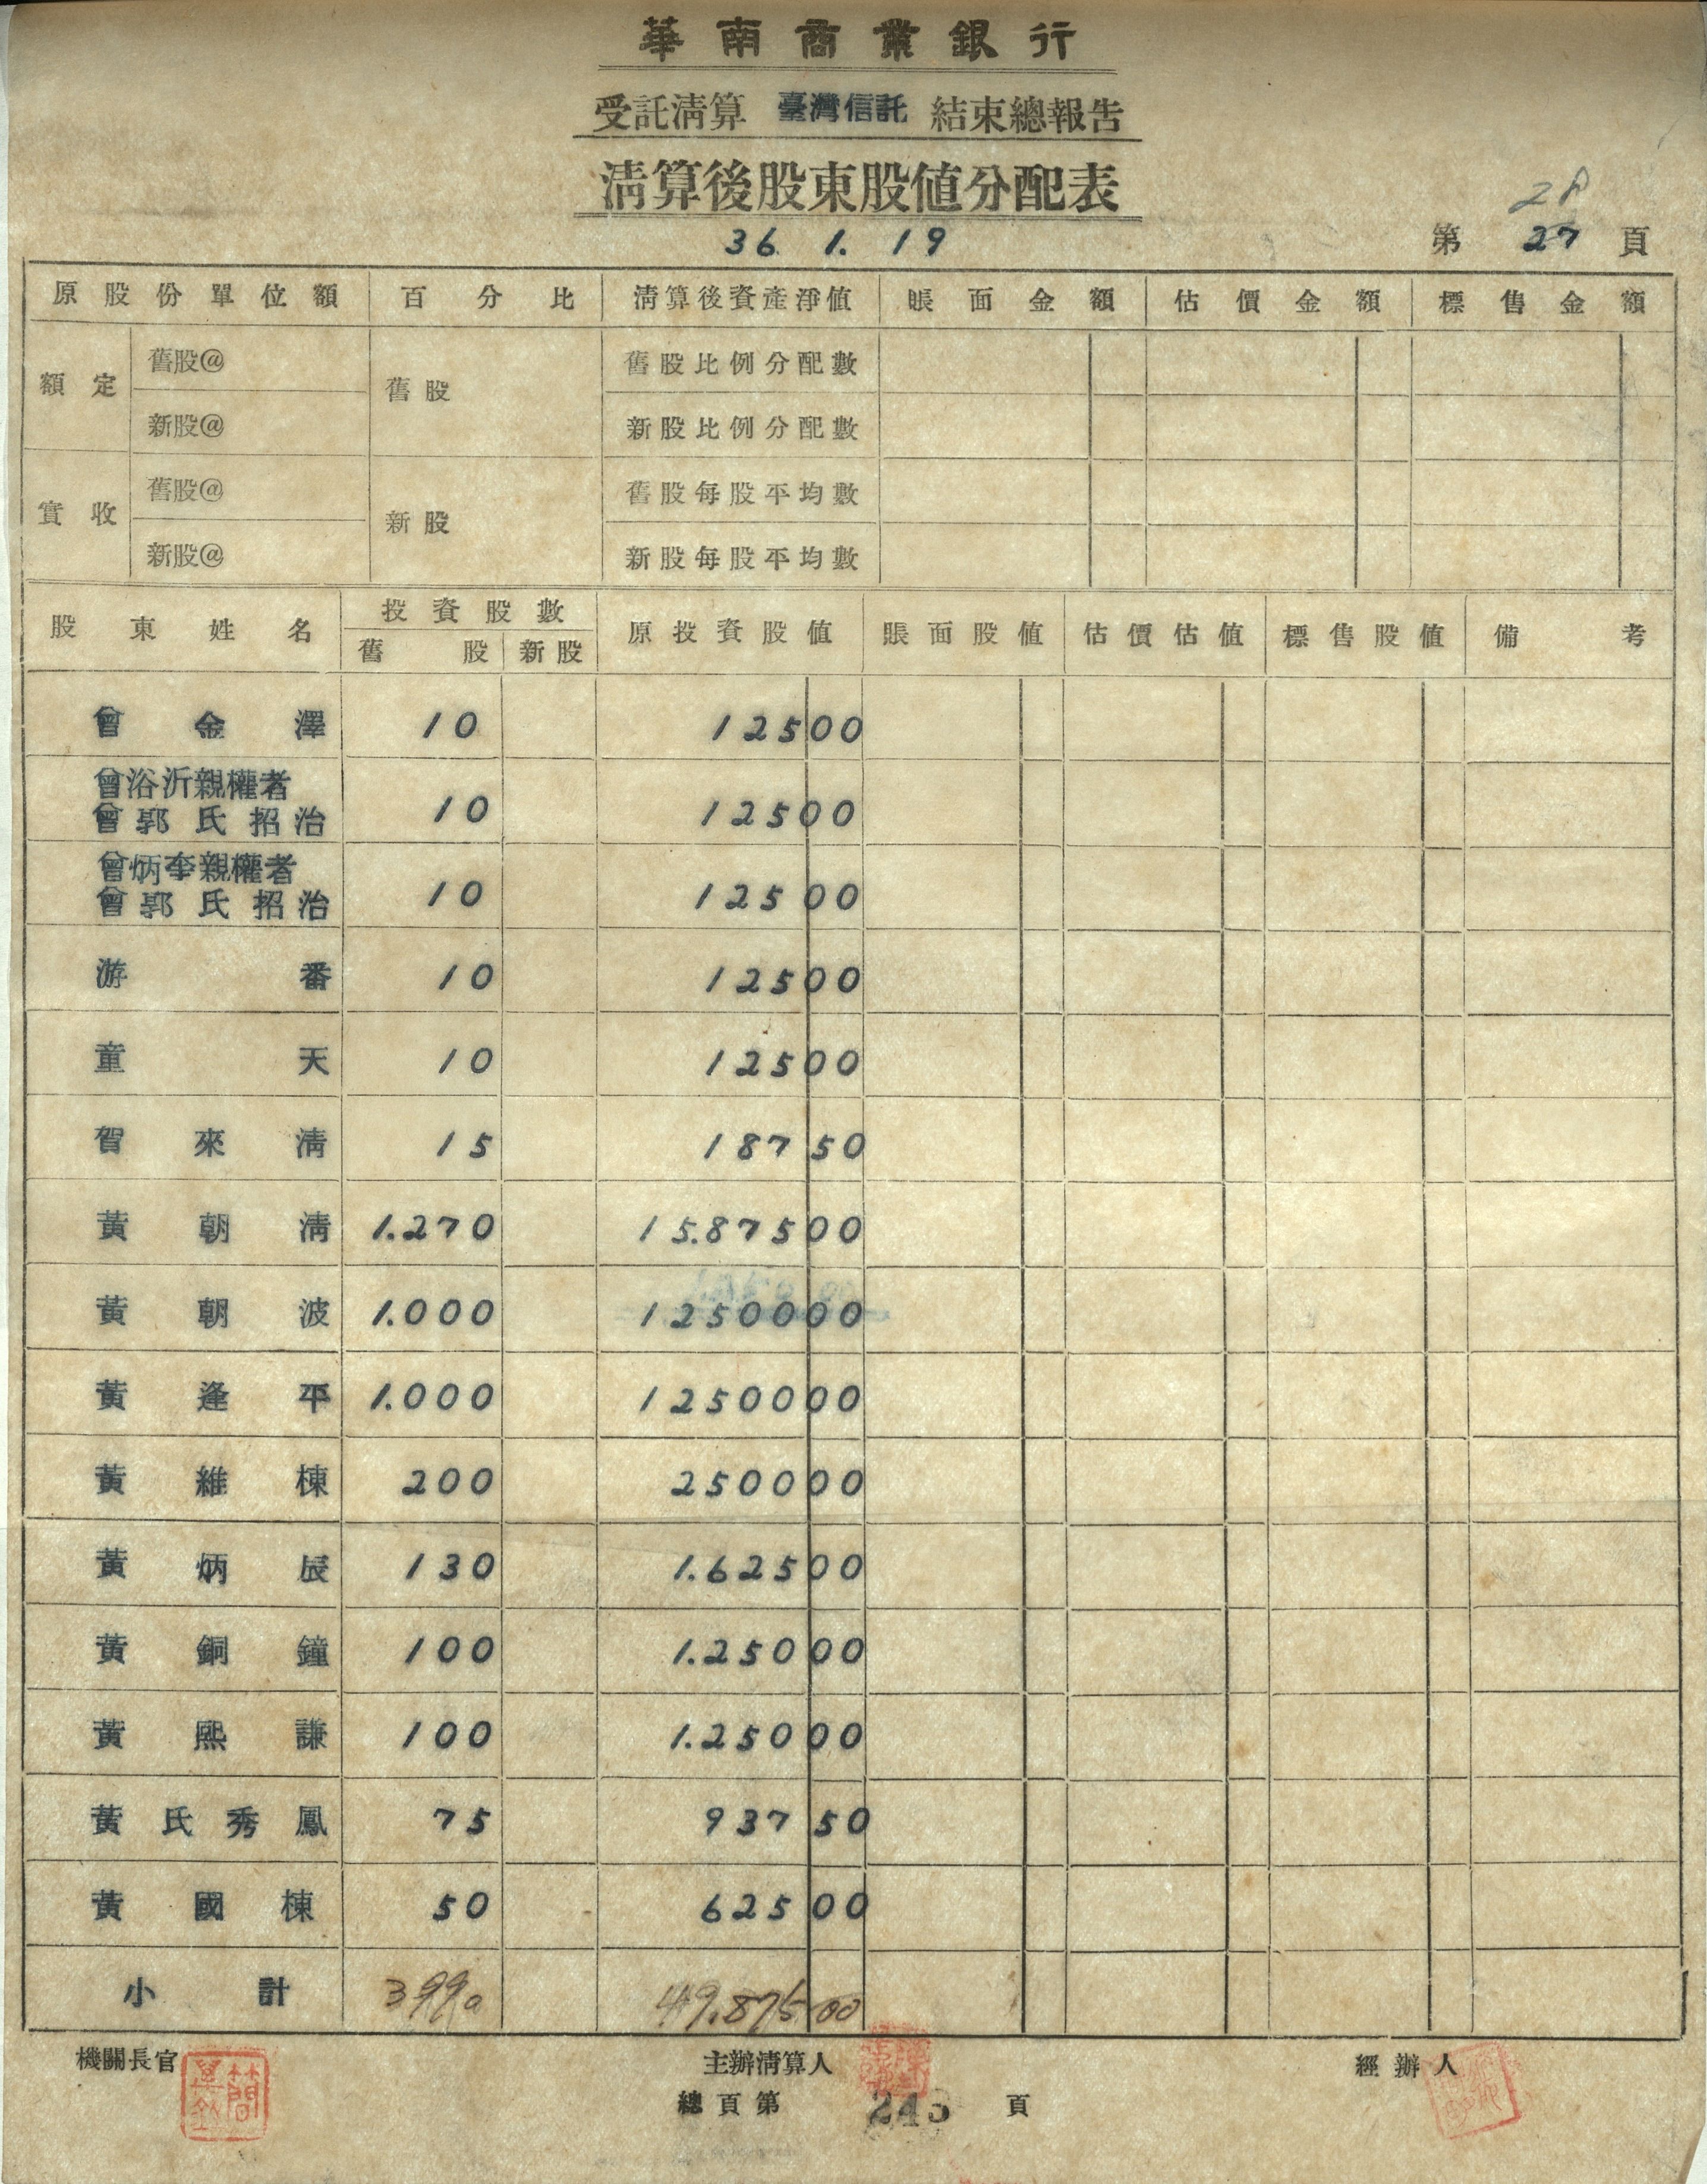 華南商業銀行
受託清算 臺灣信託 結束總報告
清算後股東股值分配表
28
36. 1. 19 第 27 頁
原股份單位額 百分比 清算後資產淨值 賬面金額 估價金額 標售金額
額定 舊股@ 舊股 舊股比例分配數
新股@ 新股比例分配數
實收 舊股@ 新股 舊股每股平均數
新股@ 新股每股平均數
股東姓名 投資股數 原投資股值 賬面股值 估價估值 標售股值 備考
舊股 新股
曾金澤 10 125 00
曾浴沂親權者
曾郭氏招治 10 125 00
曾炳奎親權者
曾郭氏招治 10 125 00
游番 10 125 00
童天 10 125 00
賀來清 15 187 50
黃朝清 1.270 15.875 00
黃朝波 1.000 12500 00
黃逢平 1.000 12500 00
黃維棟 200 2500 00
黃炳辰 130 1.625 00
黃銅鐘 100 1.250 00
黃熙謙 100 1.250 00
黃氏秀鳳 75 937 50
黃國棟 50 625 00
小計 3990 49.875 00
機關長官 主辦清算人 經辦人
總頁第 243 頁